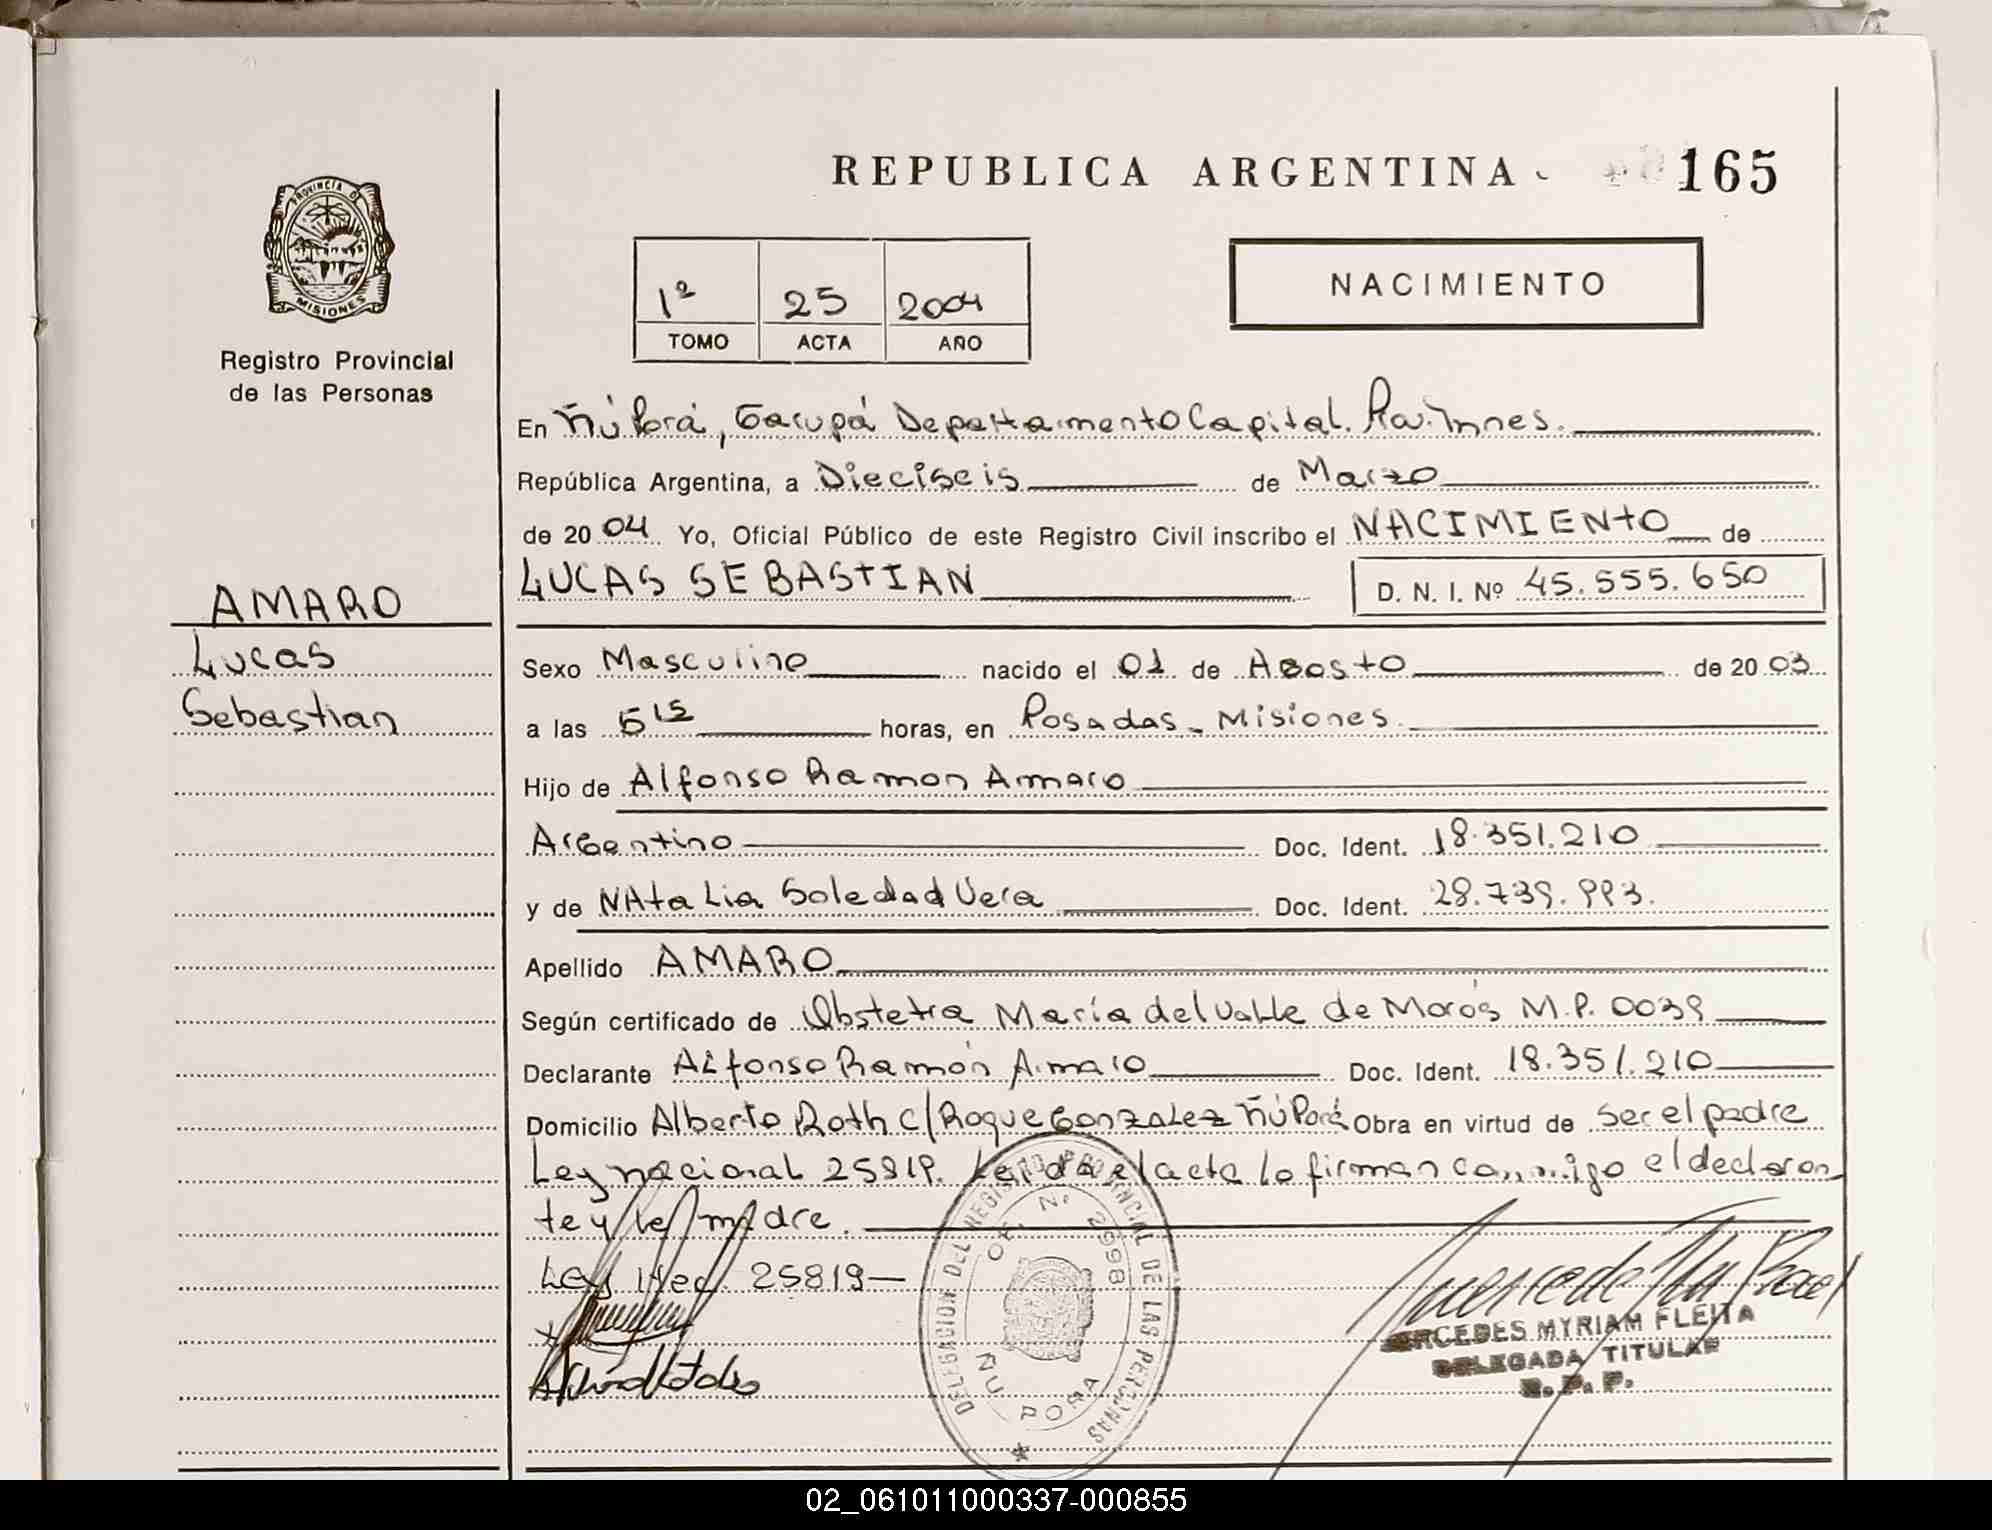 REPUBLICA ARGENTINA
165
PROVINCIA DE
MISIONES
Registro Provincial
de las Personas
1º 25 2004
TOMO ACTA AÑO
NACIMIENTO
En Ñú Porá, Garupá Departamento Capital. Misiones.
República Argentina, a Dieciseis de Marzo
de 2004 Yo, Oficial Público de este Registro Civil inscribo el NACIMIENTO de
LUCAS SEBASTIAN D. N. I. Nº 45.555.650
AMARO
Lucas
Sebastian
Sexo Masculino nacido el 01 de Agosto de 2003
a las 5 15 horas, en Posadas - Misiones.
Hijo de Alfonso Ramon Amaro
Argentino Doc. Ident. 18.351.210
y de NAtalia Soledad Vera Doc. Ident. 28.739.993.
Apellido AMARO
Según certificado de Obstetra María del Valle de Morós M.P. 0039
Declarante Alfonso Ramón Amaro Doc. Ident. 18.351.210
Domicilio Alberto Roth c/Roque Gonzalez Ñú Porá Obra en virtud de Ser el padre
Ley nacional 25819. Leída el acta lo firman conmigo el declaran
te y la madre.
Ley Nac. 25819-
DELEGACION DEL REGISTRO PROVINCIAL DE LAS PERSONAS
DEL Nº 2998
ÑU PORA
MERCEDES MYRIAM FLEITA
DELEGADA TITULAR
R. P. P.
02_061011000337-000855